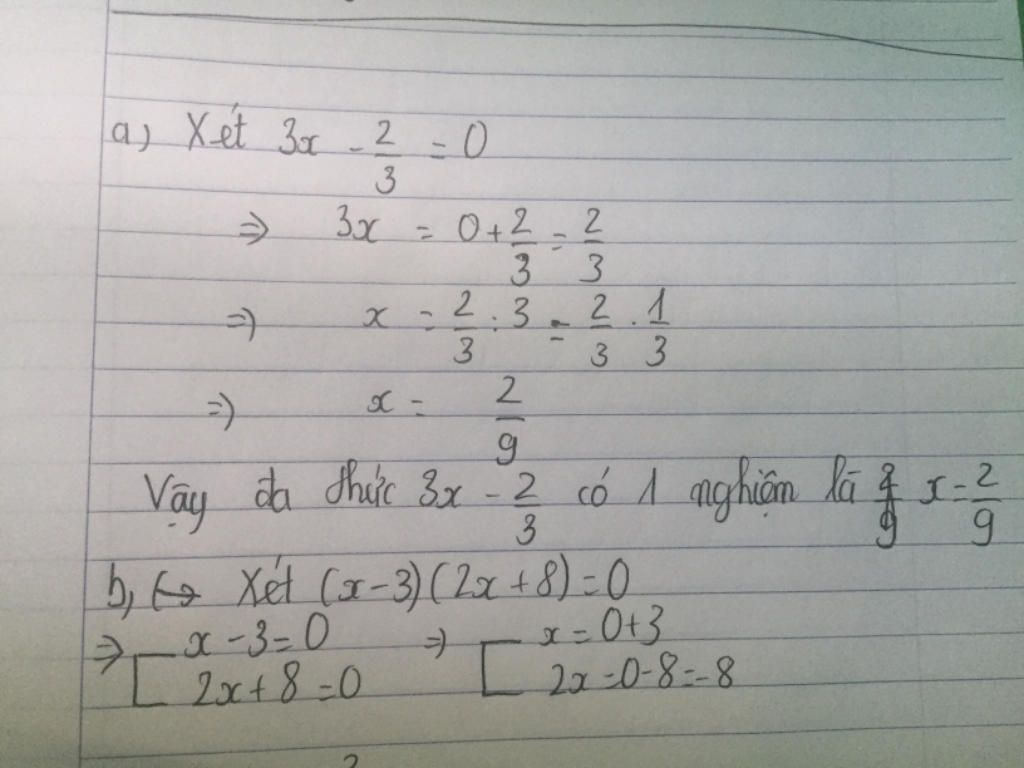 a) Xét 3x - 2/3 = 0
=> 3x = 0 + 2/3 = 2/3
=> x = 2/3 : 3 = 2/3 . 1/3
=> x = 2/9
Vậy đa thức 3x - 2/3 có 1 nghiệm là x = 2/9
b, ↪ Xét (x-3)(2x+8) = 0
=> [ x - 3 = 0 => [ x = 0+3
2x + 8 = 0 2x = 0-8 = -8